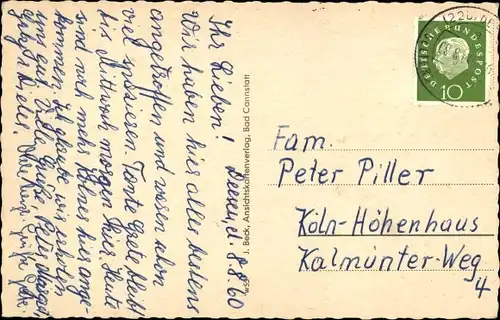 Ihr Lieben! den 8.8.60
Wir haben hier alles bestens
angetroffen und waren schon
viel spazieren. Tante Grete bleibt
bis Mittwoch morgen hier. Heute
sind noch mehr Kölner hier ange-
kommen. Ich glaube wir erholen
uns gut. Viele Grüße
J. Beck, Ansichtskartenverlag, Bad Cannstatt
DEUTSCHE BUNDESPOST
10
Fam.
Peter Piller
Köln-Höhenhaus
Kalmünter-Weg
4